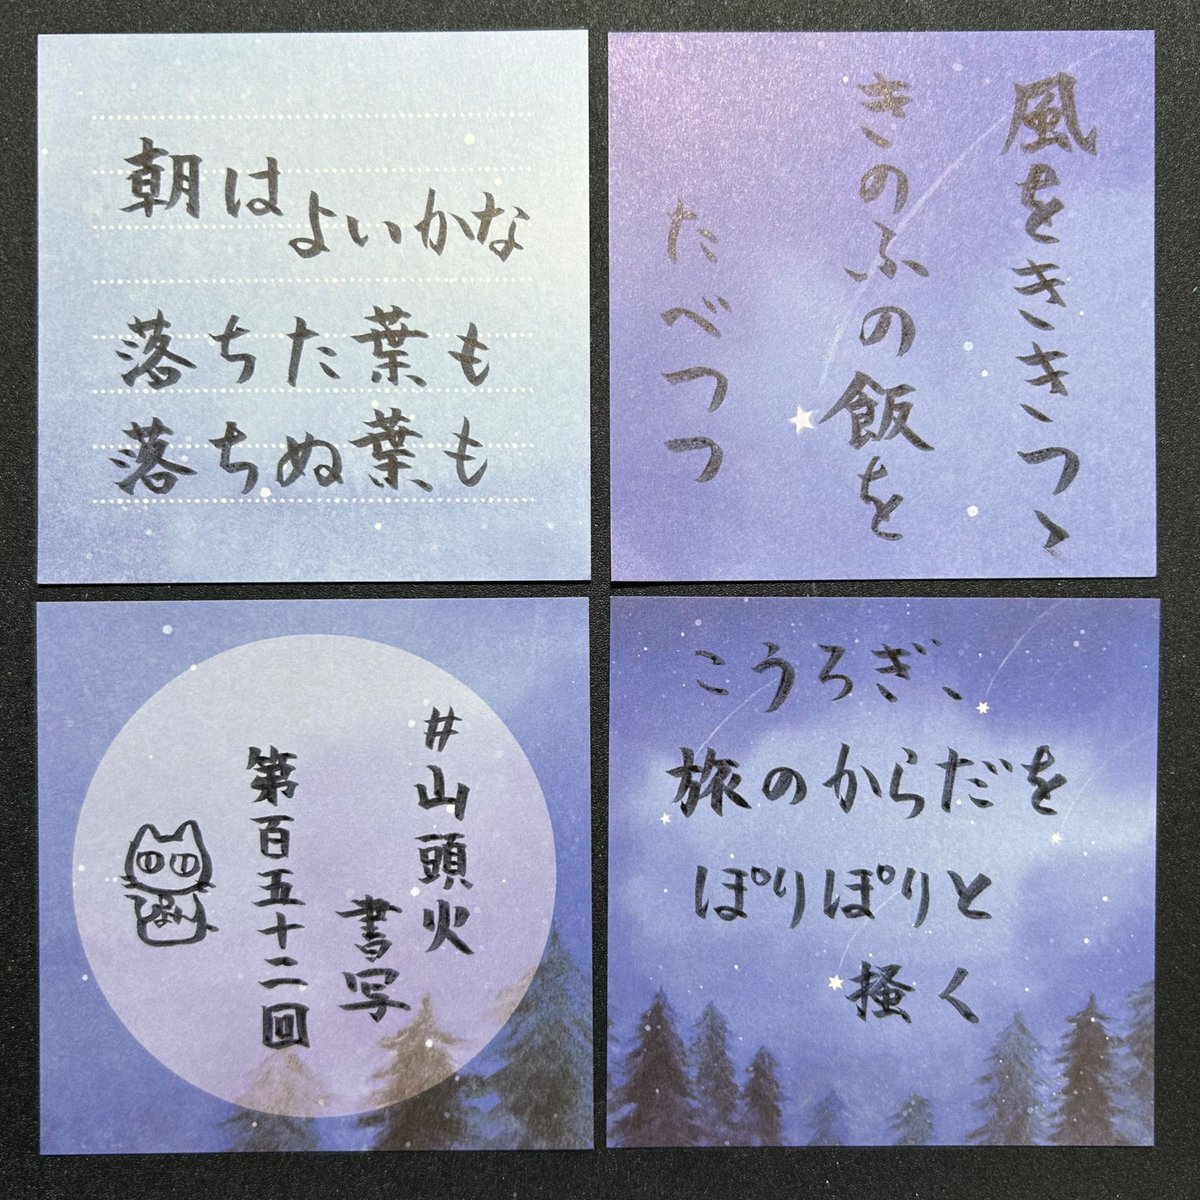 朝はよいかな
落ちた葉も
落ちぬ葉も
風をききつゝ
きのふの飯を
たべつつ
#山頭火
書写
第百五十二回
よい
こうろぎ、
旅のからだを
ぽりぽりと
掻く